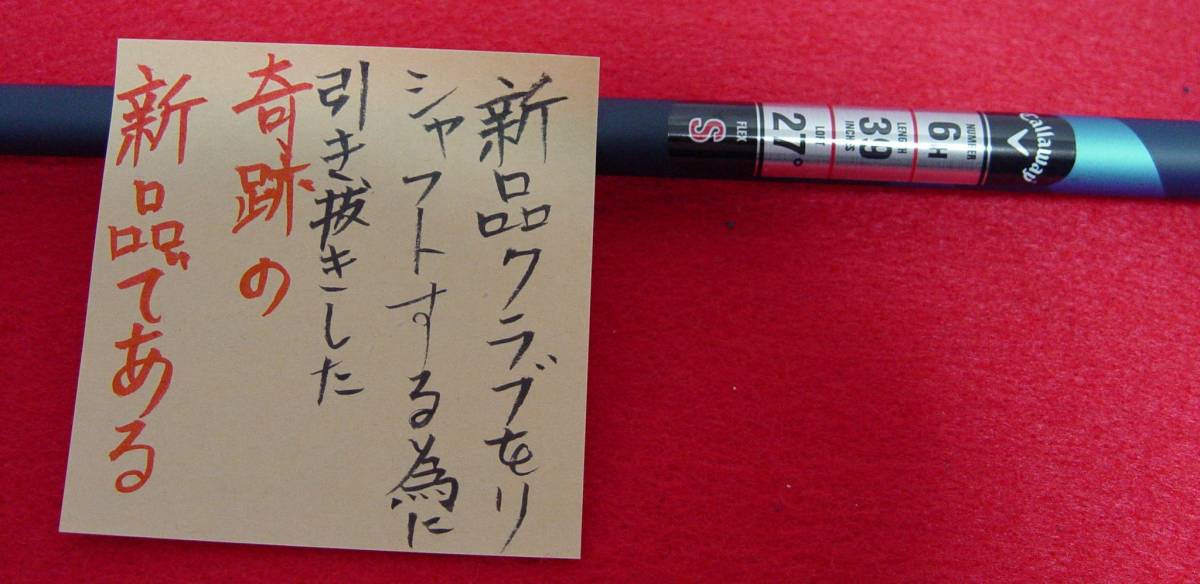 新品クラブをリ
シャフトする為に
引き抜きした
奇跡の
新品である
Callaway
NUMBER
6H
LENGTH
39
INCHES
LOFT
27°
FLEX
S